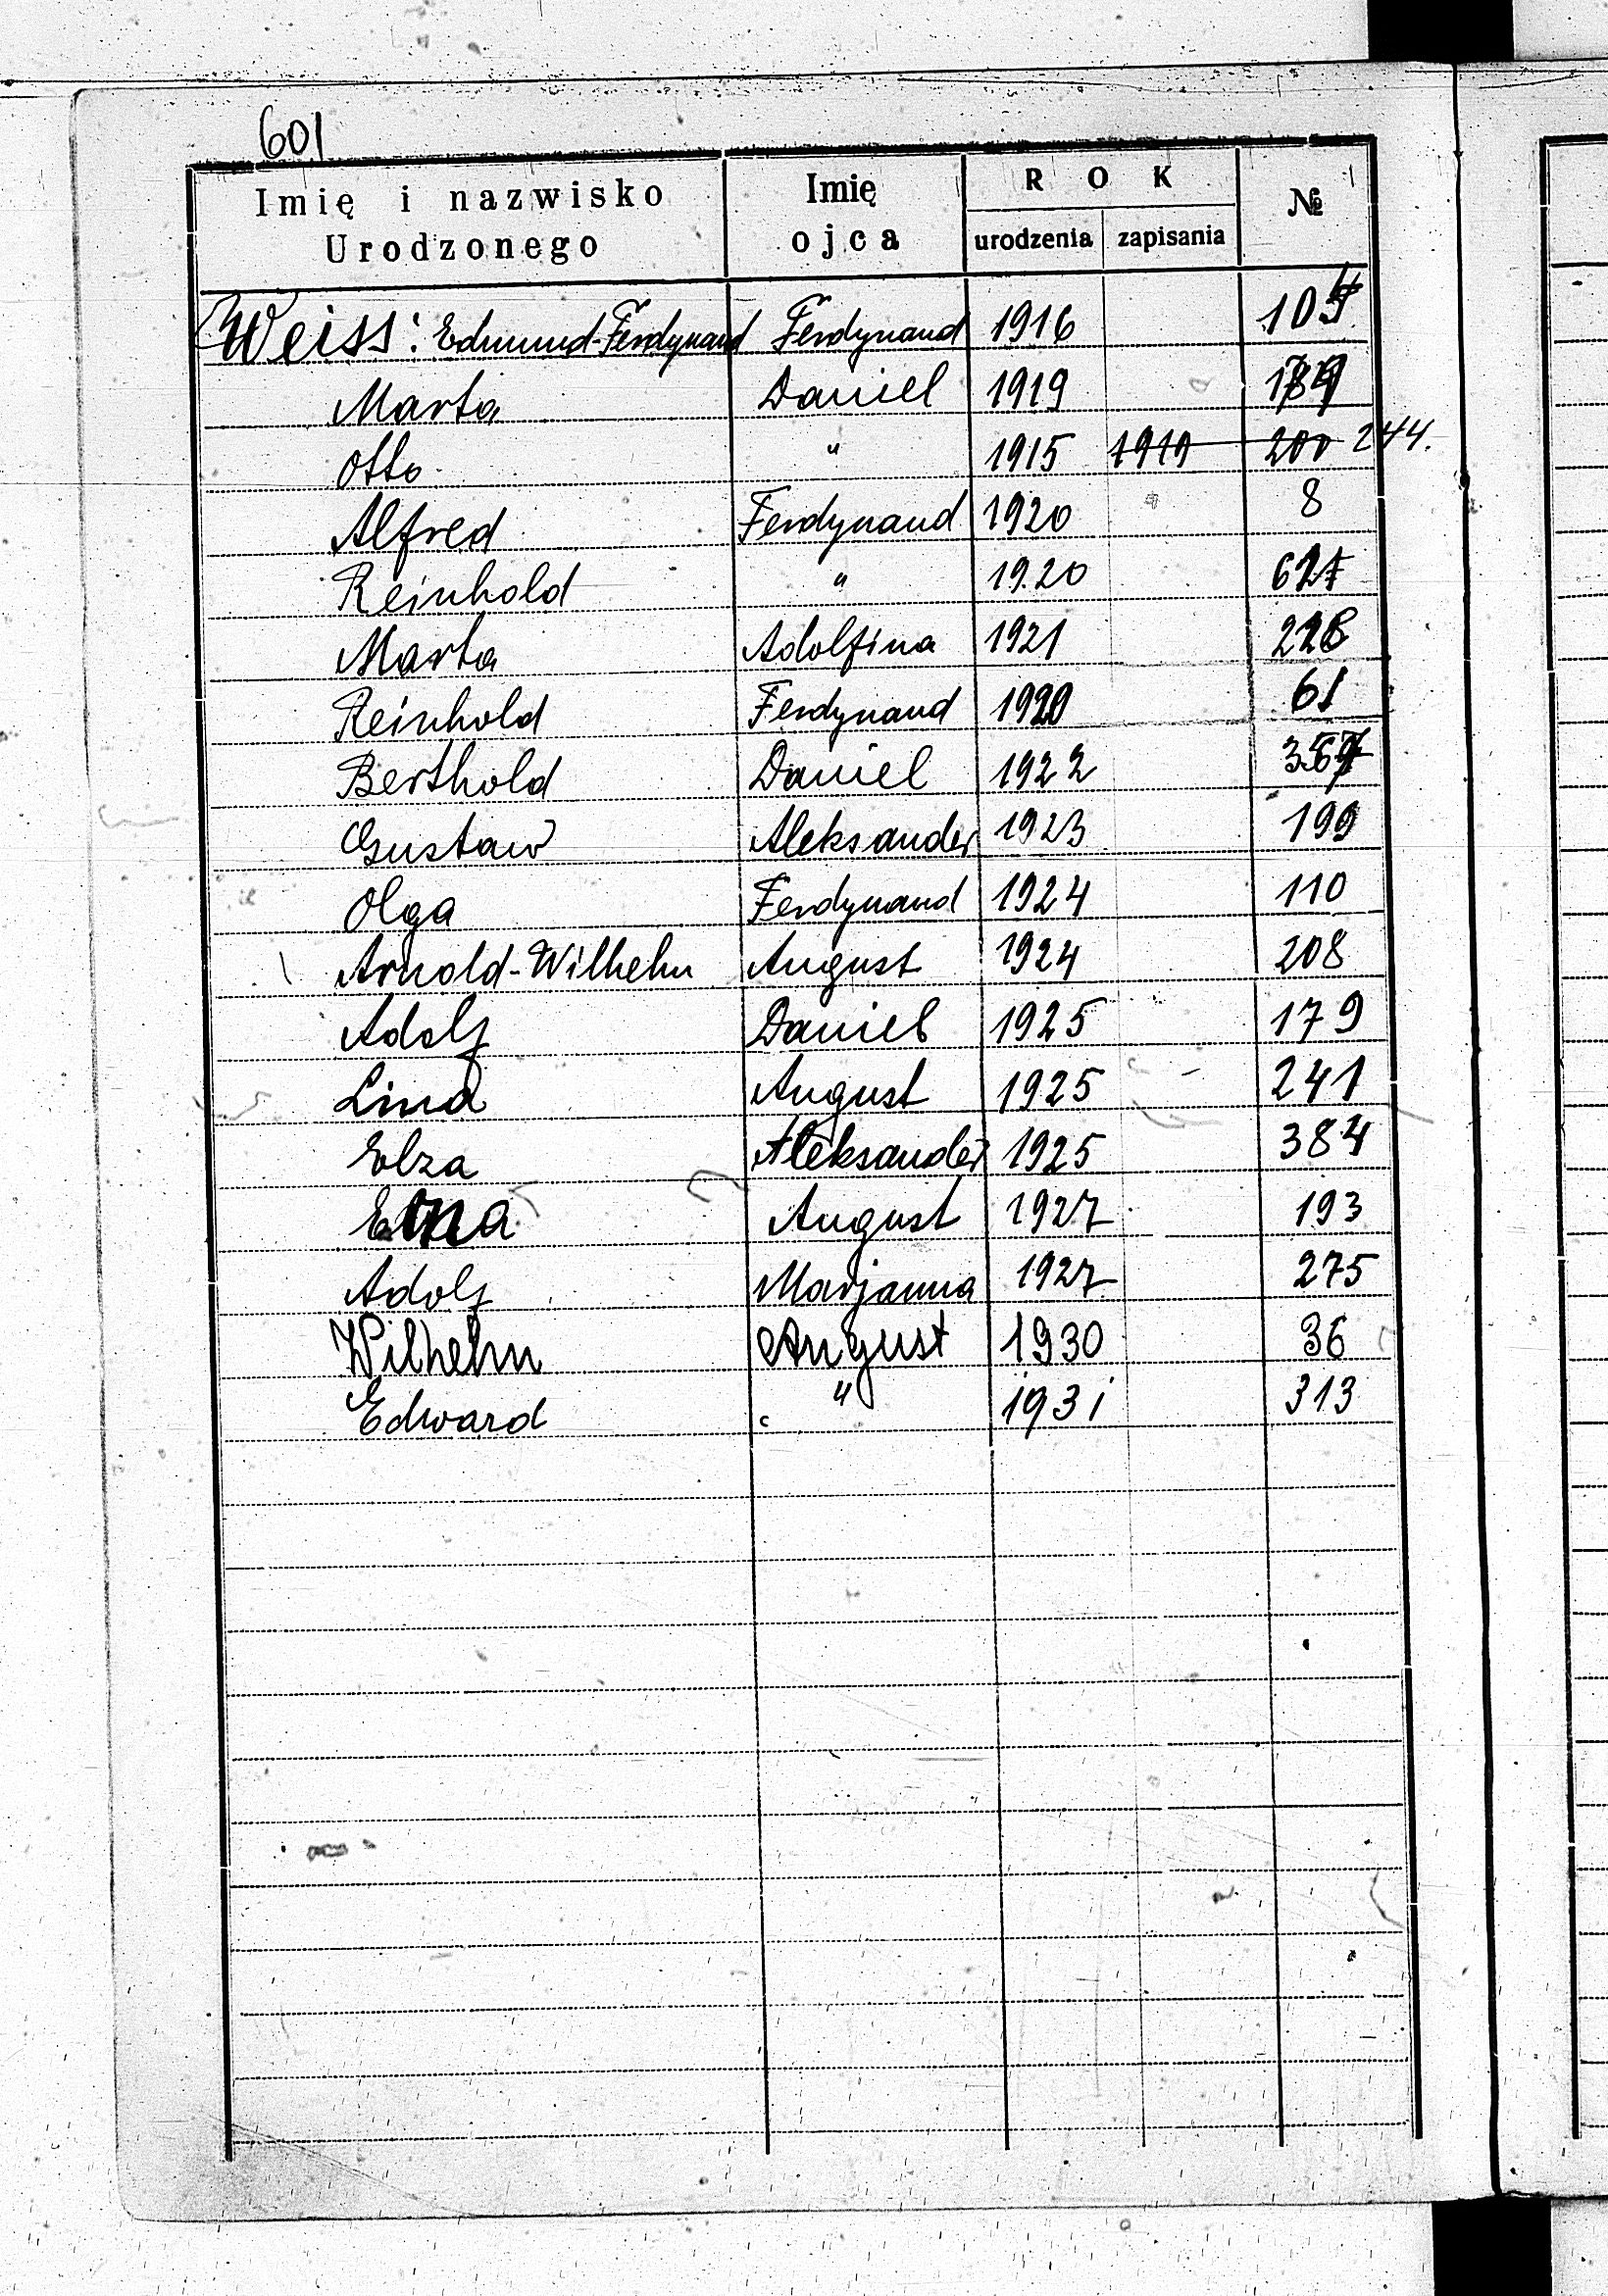 601
Imię i nazwisko Urodzonego Imię ojca ROK urodzenia zapisania №
Weiss: Edmund-Ferdynand Ferdynand 1916
Marta Daniel 1919
Otto " 1915 1919 200 244.
Alfred Ferdynand 1920 8
Reinhold " 1920
Marta Adolfina 1921
Reinhold Ferdynand 1920 61
Berthold Daniel 1922
Gustaw Aleksander 1923 199
Olga Ferdynand 1924 110
Arnold-Wilhelm August 1924 208
Adolf Daniel 1925 179
Lina August 1925 241
Elza Aleksander 1925 384
Edna August 1927 193
Adolf Marjanna 1927 275
Wilhelm August 1930 36
Edward " 1931 313